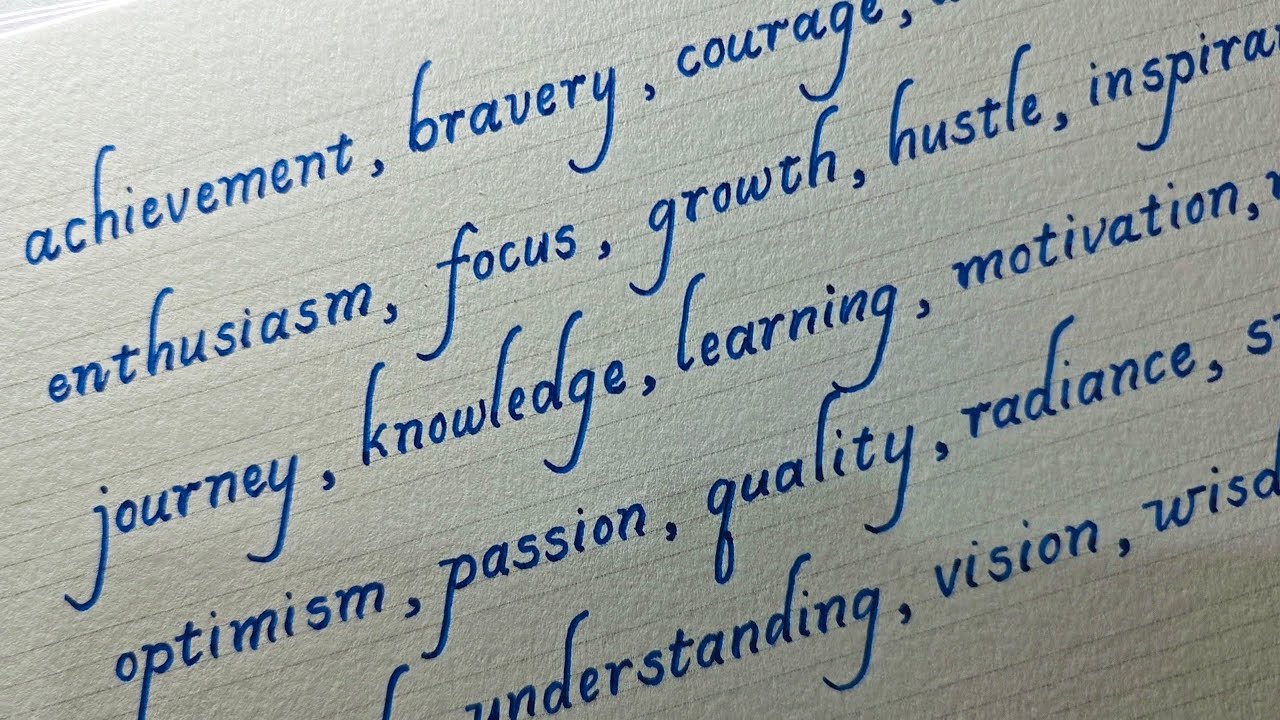 achievement, bravery, courage,
enthusiasm, focus, growth, hustle,
journey, knowledge, learning, motivation,
optimism, passion, quality, radiance,
understanding, vision,